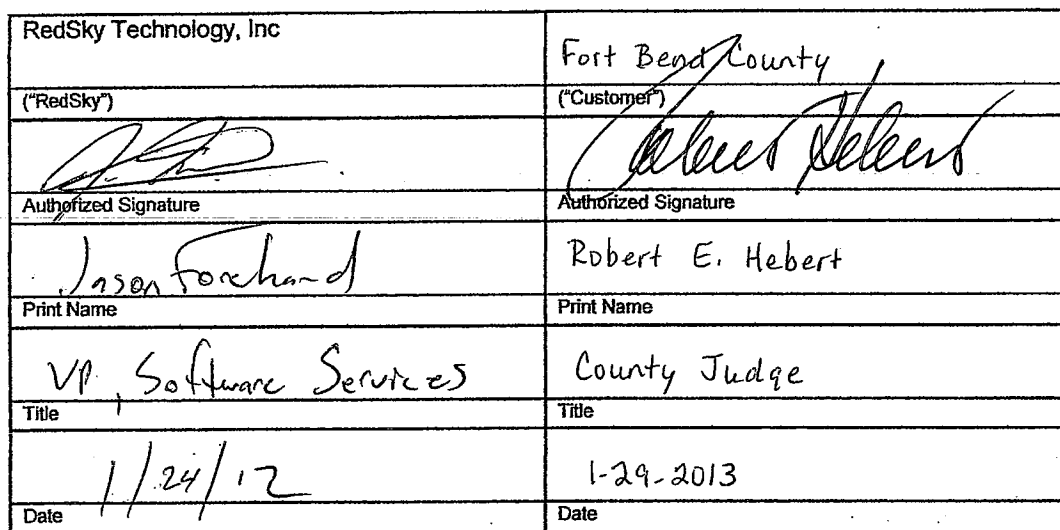 RedSky Technology, Inc
Fort Bend County
("RedSky")
("Customer")
Robert Hebert
Authorized Signature
Authorized Signature
Jason Forehand
Robert E. Hebert
Print Name
Print Name
VP, Software Services
County Judge
Title
Title
1/24/12
1-29-2013
Date
Date